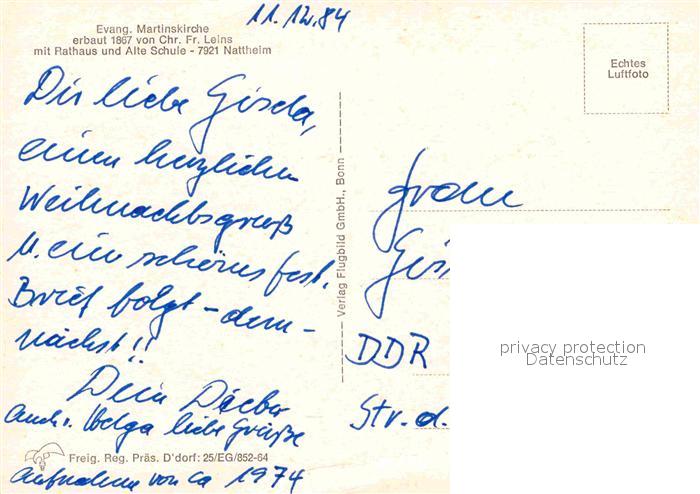 11. 12. 84
Evang. Martinskirche
erbaut 1867 von Chr. Fr. Leins
mit Rathaus und Alte Schule - 7921 Nattheim
Dir liebe Gisela,
einen herzlichen
Weihnachtsgruß
u. ein schönes Fest.
Brief folgt - dem-
nächst!!
Dein Dieter
Auch v. Helga liebe Grüße
Freig. Reg. Präs. D'dorf: 25/EG/852-64
Aufnahme von ca 1974
Verlag Flugbild GmbH., Bonn
Echtes
Luftfoto
Frau
Gis
DDR
Str. d.
privacy protection
Datenschutz